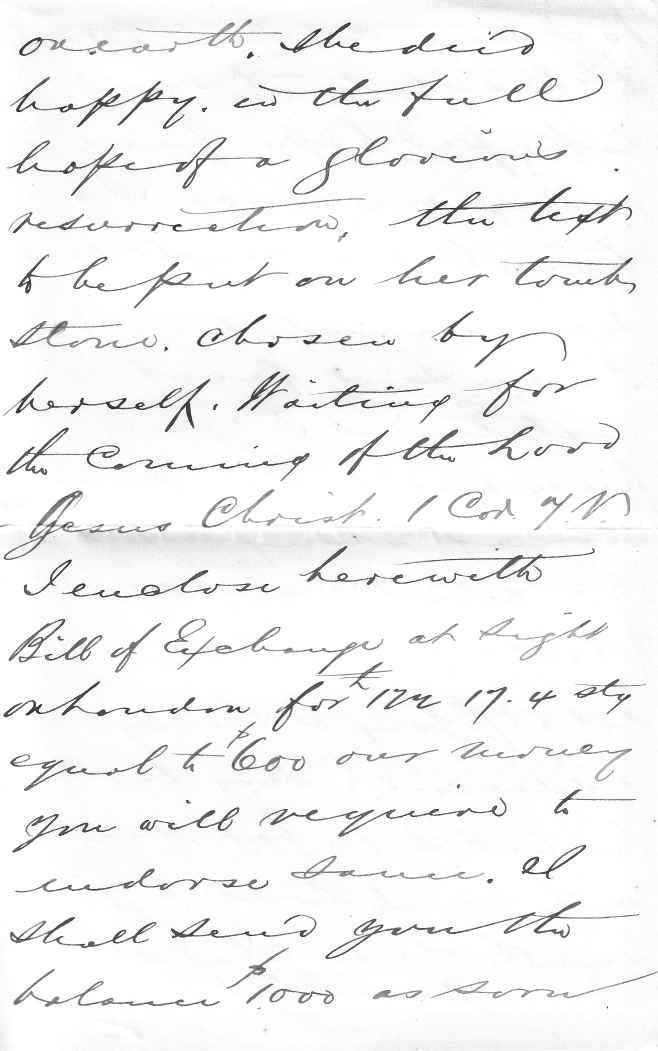 on earth. She died
happy. in the full
hope of a glorious
resurrection, the text
to be put on her tomb
stone. chosen by
herself. Waiting for
the Coming of the Lord
Jesus Christ. 1 Cor. 7 V.
I enclose herewith
Bill of Exchange at sight
on London for 17. 4 stg
equal to $600 our money
you will require to
endorse same. I
shall send you the
balance $1000 as soon